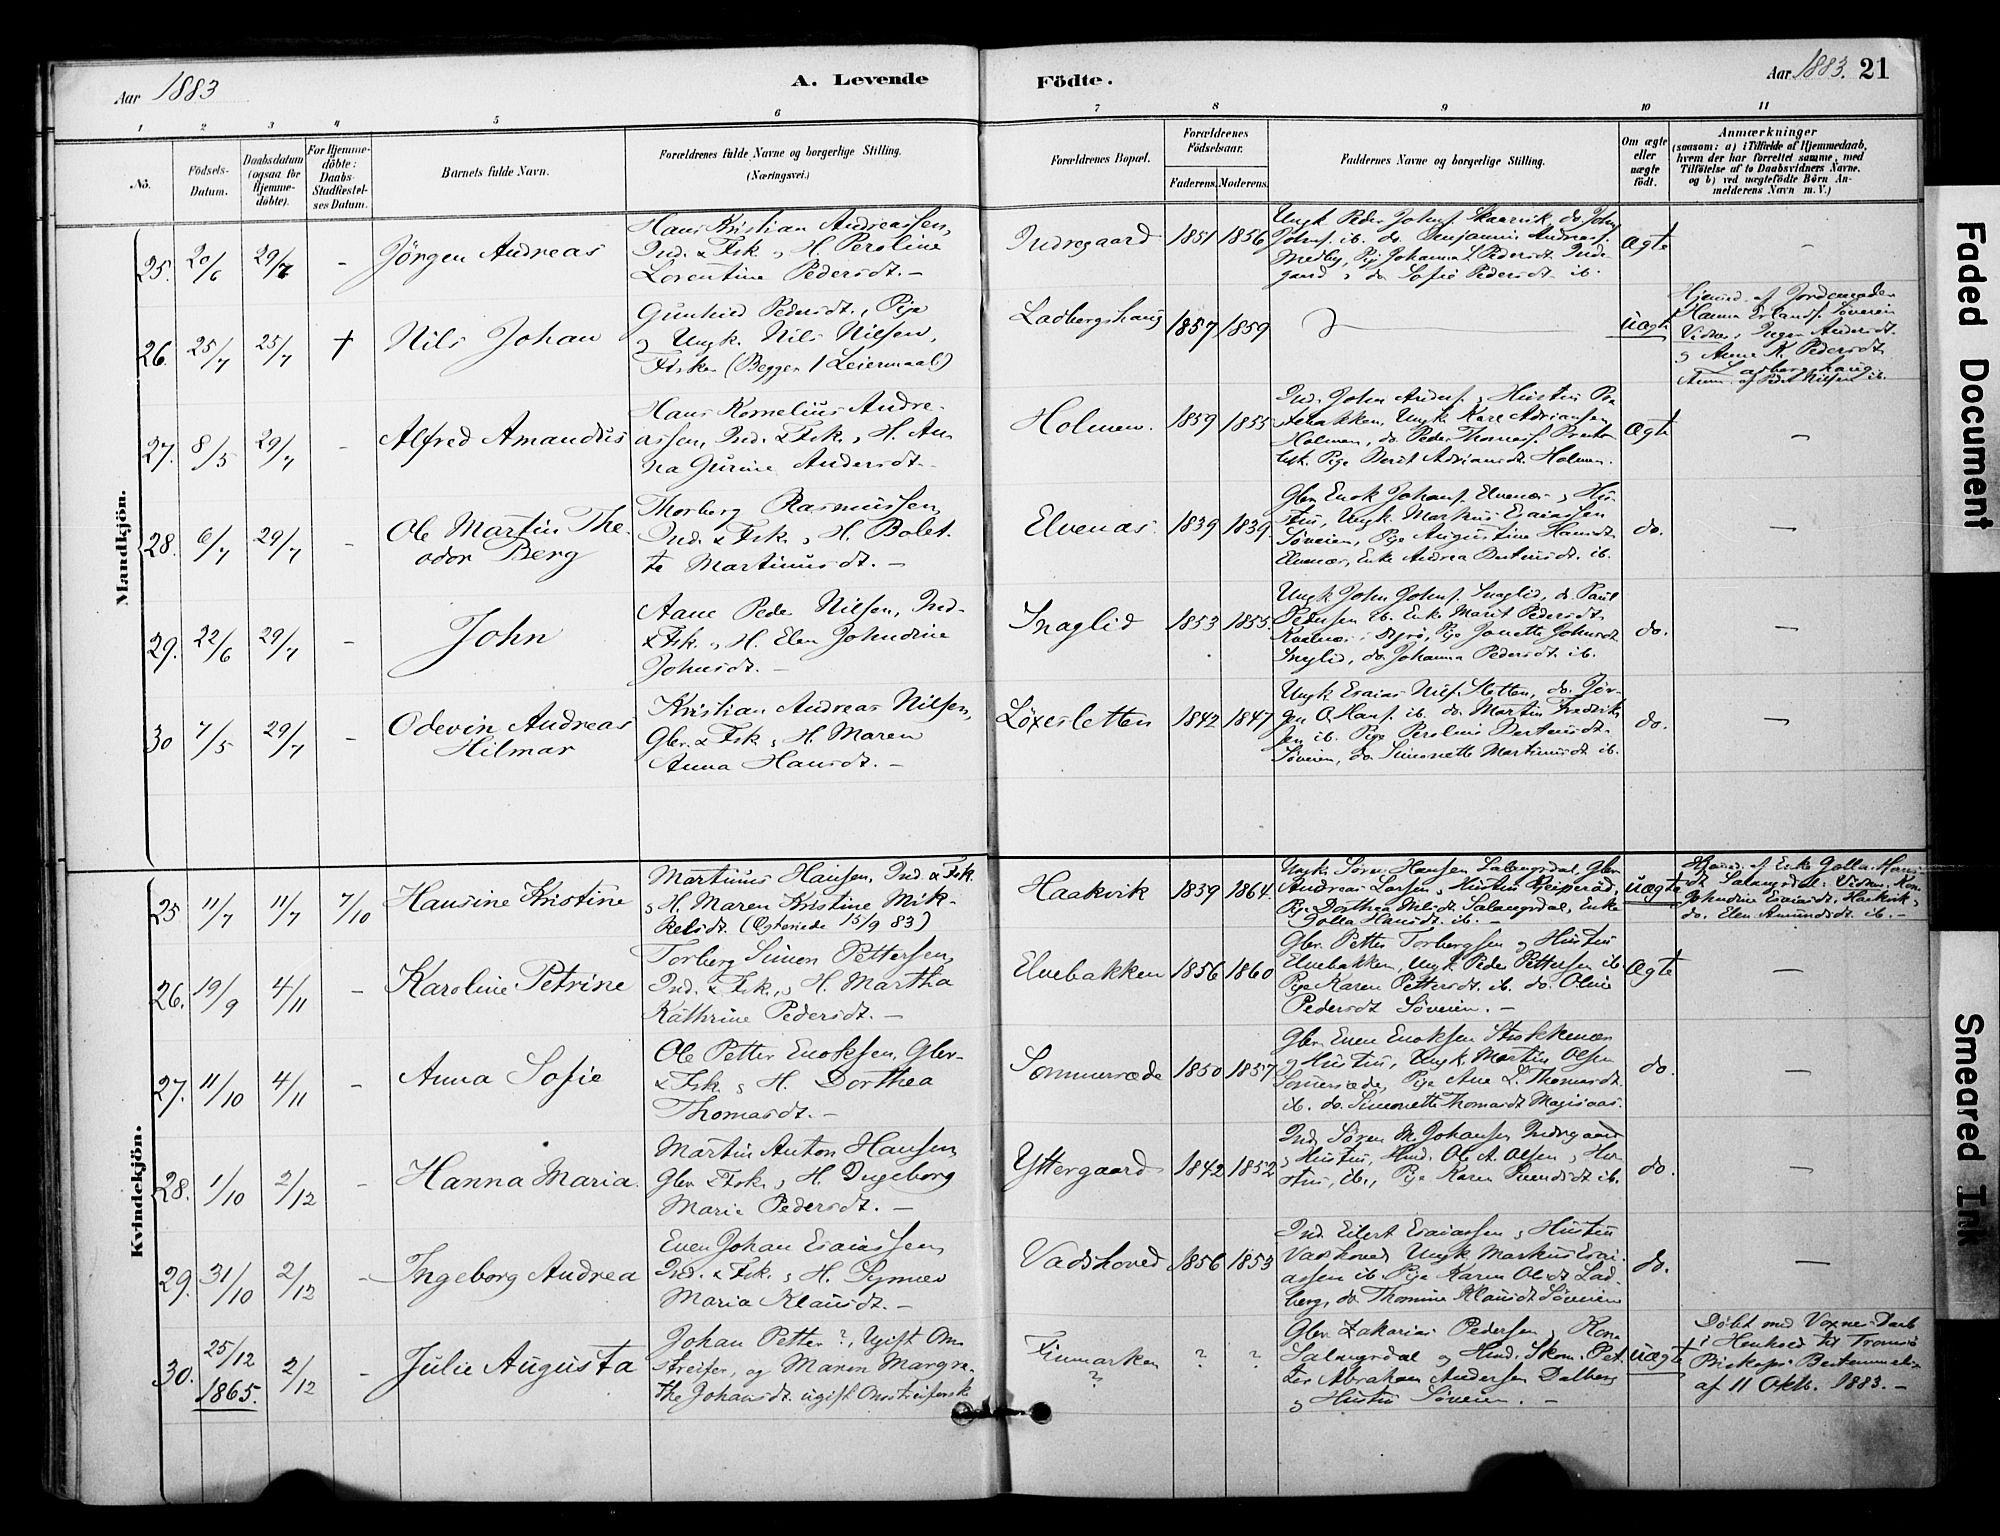 Aar 1883
A. Levende
Födte.
Aar 1883. 21
1 2 3 4 5 6 7 8 9 10 11
No.
Födsels-Datum.
Daabsdatum (ogsaa for Hjemme-döbte).
For Hjemme-döbte: Daabs-Stadfæstel-ses Datum.
Barnets fulde Navn.
Forældrenes fulde Navne og borgerlige Stilling. (Næringsvei.)
Forældrenes Bopæl.
Forældrenes Födselsaar.
Faderens. Moderens.
Faddernes Navne og borgerlige Stilling.
Om ægte eller uægte födt.
Anmærkninger
(saasom: a) i Tilfælde af Hjemmedaab, hvem der har forrettet samme, med Tilföielse af to Daabsvidners Navne. og b) ved uægtefödte Börn An-melderens Navn m. V.)
Mandkjön.
25. 20/6 29/7 - Jörgen Andreas
Hans Kristian Andreassen,
Ind. & Fsk. & H. Peroline
Lorentine Pedersdt. -
Indregaard 1851 1856
Ungk. Peder Johns. Skaarvik, do. John
Johns. ib. do. Benjamin Andreas.
Medby, Pige Johanna L Pedersdt. Indre-
gaard, do Sofie Pedersdt. ib.
Ægte -
26. 25/7 25/7 + Nils Johan
Gunhild Pedersdt., Pige
og Ungk. Nils Nilsen,
Fisker (Begges 1 Leiermaal)
Ladbergshaug 1857 1859
uægte
Hjemd. af Jordemoder
Hanna Erlands. Söveien
Vidner: Inger Andersdt.
& Anne K. Pedersdt.
Ladbergshaug
Anm. af Nilsen ib.
27. 8/5 29/7 - Alfred Amandus
Hans Kornelius Andre-
assen, Ind. & Fsk. & H. An-
na Gurine Andersdt. -
Holmen. 1859 1855
Ind. John Anders. & Hustru
Ungk. Karl Adriansen
Holmen, do. Peder Thomass.
Pige Berit Adriansdt. Holmen.
Ægte -
28. 6/7 29/7 - Ole Martin The-
odor Berg
Thorberg Rasmussen,
Ind. & Fsk. & H. Bolet-
te Martinusdt. -
Elvenæs. 1839 1839.
Gbr. Enok Johans. Elvenæs & Hu-
stru, Ungk. Markus Esaiassen
Söveien, Pige Augustine Hansdt.
Elvenæs, Enke Andrea Bertinusdt. ib.
do. -
29. 22/6 29/7 - John
Aane Peder Nilsen, Ind-
& Fsk. & H. Elen Johndine
Johnsdt. -
Inaglid 1853 1855.
Ungk. John Johns. Inaglid, do Paul
Pedersen ib. Enke Marit Pedersdt.
Kvalnæs i Dyrö, Pige Jonette Johnsdt.
Inaglid, do Johanna Pedersdt. ib.
do. -
30 7/5 29/7 - Odevin Andreas
Hilmar
Kristian Andreas Nilsen,
Gbr. & Fsk. & H. Maren
Anna Hansdt. -
Löxesletten 1842 1847
Ungk. Esaias Nils. Sletten, do. Jör-
gen O. Hans. ib. do. Martin Fredrik-
sen ib. Pige Peroline Bertinusdt.
Söveien, do Simonette Martinusdt. ib.
do. -
Kvindekjön.
25 11/7 11/7 7/10 Hansine Kristine
Martinus Hansen, Ind. & Fsk.
& H. Maren Kristine Mik-
kelsdt. (Egteviede 15/9 83)
Haakvik 1839 1864.
Ungk. Sören Hansen Salangsdal, Gbr
Andreas Larsen & Hustru
Pige Dorthea Nilsdt. Salangsdal, Enke
Golla Hansdt. ib. -
uægte
Hjemd. af Enke Golla Hans-
dt. Salangsdal. Vidner: Kone
Johndine Esaiasdt. Haakvik &
do. Elen Amundsdt. ib. -
26. 19/9 4/11 - Karoline Petrine
Torberg Simon Pettersen,
Ind. & Fsk. & H. Martha
Kathrine Pedersdt. -
Elvebakken 1856 1860
Gbr. Petter Torbergsen & Hustru
Elvebakken, Ungk. Peder Pettersen ib.
Pige Karen Pettersdt. ib. do. Oline
Pedersdt Söveien. -
Ægte -
27. 11/10 4/11 - Anna Sofie
Ole Petter Enoksen, Gbr-
& Fsk. & H. Dorthea
Thomasdt. -
Sommersæde 1850 1857
Gbr. Even Enoksen Stokkenæs
& Hustru, Ungk. Martin Olsen
Somersæde, Pige Ane D. Thomasdt.
ib. do. Simonette Thomasdt Magisaas.
do. -
28. 1/10 2/12 - Hanna Maria
Martin Anton Hansen,
Gbr & Fsk. & H. Ingeborg
Marie Pedersdt. -
Yttergaard 1842 1852
Ind. Sören M. Johansen Indregaard
& Hustru, Hmd. Ole A. Olsen & Hu-
stru, ib., Pige Karen ib.
do. -
29. 31/10 2/12 - Ingeborg Andrea
Even Johan Esaiassen,
Ind. & Fsk. & H. Synnev
Maria Klausdt. -
Vadshoved 1856 1853
Ind. Eilert Esaiassen & Hustru
Vadshoved, Ungk. Markus Esai-
assen ib. Pige Karen Olsdt Lad-
berg, do Thomine Klausdt Söveien
do. -
30. 25/12 1865. 2/12 - Julie Augusta
Johan Petter ?, Ugift Om-
streifer, og Maren Margre-
the Johansdt. ugift Omstreiferske
Finmarken ? ? ?
Gbr Zakarias Pedersen & Kone
Salangsdal og Hmd. Skom. Pet-
ter Abraham Andersen Dalberg
& Hustru Söveien. -
uægte
Döbt med Voxne-Daab
i Henhold til Tromsö
Biskops Bestemmelse
af 11 Okt. 1883. -
Faded Document
Smeared Ink